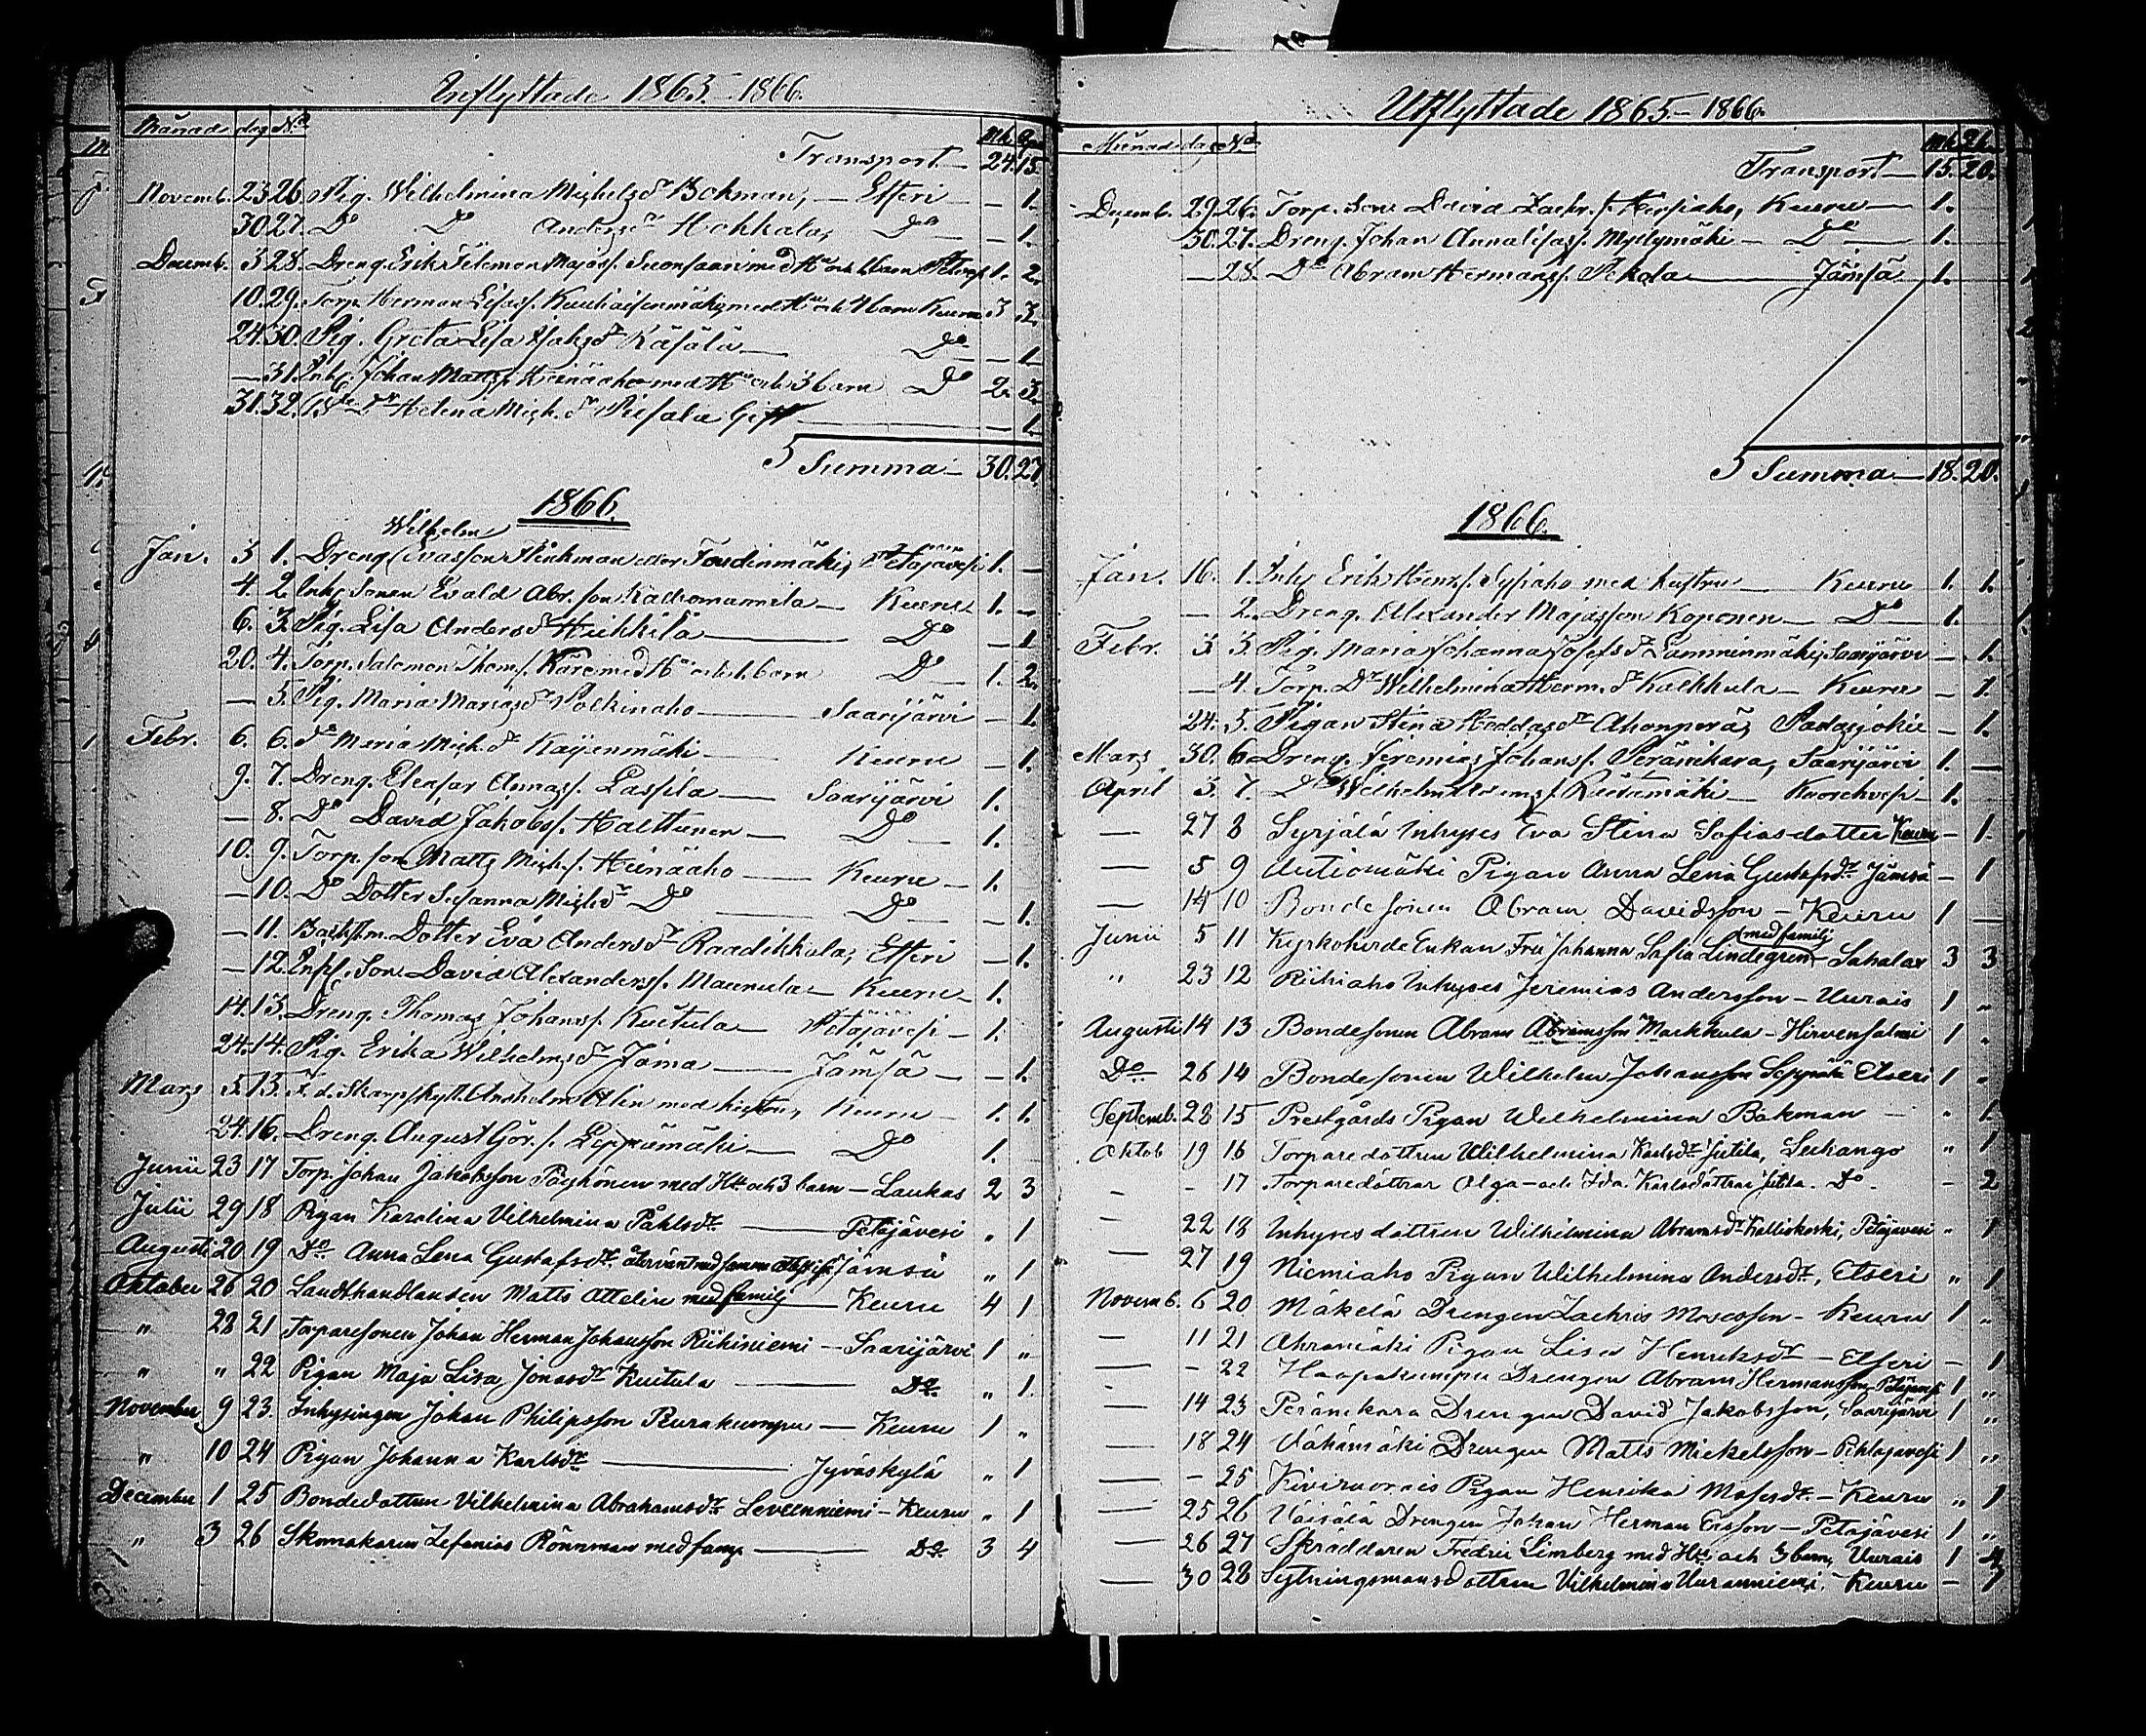 Inflyttade 1865.-1866.
Månad dag No Mk. Qk.
Transport — 24. 15.
Novemb. 23. 26. Pig. Wilhelmina Michelsdr Bokman, — Etseri — 1.
30. 27. Do Do Andersdr Hokkala, Do — 1.
Decemb. 3. 28. Dreng. Erik Filemon Majass. Suonsaari med Hu och 1 barn 1. 2.
10. 29. Torp. Herman Lisass. med Hu och barn Keuru 3 3.
24. 30. Pig. Greta Lisa Isaksdr Käsälä — Do — 1.
— 31. Inh. Johan Matts. Heinäaho med Hu och 3 barn Do 2. 3.
31. 32. Bde Dr Helena Mich. dr Piesala Gift — 1.
Summa — 30. 27.
1866.
Wilhelm
Jan. 3 1. Dreng Evasson Flinkman eller Toudinmäki, Petäjävesi 1. —
4. 2. Inh. Sonen Evald Abr. son — Keuru 1. —
6. 3. Pig. Lisa Andersdr Heikkilä — Do — 1
20. 4. Torp. Salomon Thoms. Käre med Hu och 1. barn Do 1. 2.
— 5. Pig. Maria Mariasdr Polkinaho — Saarijärvi — 1
Febr. 6. 6. Do Maria Mich. dr Kaijenmäki — Keuru — 1.
9. 7. Dreng. Eleasar Annass. Passila — Saarijärvi 1.
— 8. Do David Jakobs. Halttunen — Do 1.
10. 9. Torp. son Matts Mich. s. Heinäaho — Keuru — 1.
— 10. Do Dotter Susanna Michdr Do — Do — 1.
— 11. Dotter Eva Andersdr Raadikkala, Etseri — 1.
— 12. Inh. Son David Alexanders. Maunula — Keuru — 1.
14. 13. Dreng. Thomas Johans. Kuitula — Petäjävesi — 1.
24. 14. Pig. Erika Wilhelmsdr Jama — Jämsä — — 1.
Mars 5. 15. F. d. Skarpskytt. Anshelm Alin med hustru, Keuru — 1. 1.
24. 16. Dreng. August Gör. s. Leppämäki — Do 1.
Junii 23 17 Torp. Johan Jakobsson Pöyhönen med Hu och 3 barn — Laukas 2 3
Julii 29 18 Pigan Karolina Vilhelmina Påhlsdr — Petäjävesi „ 1
Augusti 20 19 Do Anna Lena Gustafsdr återvänt med samma Jämsä „ 1
Oktober 26 20 Landthandlanden Matts Ottelin med familj — Keuru 4 1
„ 28 21 Torparesonen Johan Herman Johansson Riihiniemi — Saarijärvi 1 „
„ „ 22 Pigan Maja Lisa Jonasdr Kuitula — Do „ 1.
November 9 23. Inhysingen Johan Philipsson Purakumpu — Keuru 1 „
„ 10 24 Pigan Johanna Karlsdr — Jyväskylä „ 1
December 1 25 Bondedottren Vilhelmina Abrahamsdr Leveenniemi — Keuru „ 1
„ 3 26 Skomakaren Zefanias Rönnman med famj. — Do 3 4
Utflyttade 1865.-1866.
Månad dag No Mk. Qk.
Transport — 15. 20.
Decemb. 29. 26. Torp. Son David Zachr. s. Kerpiaho, Keuru — 1.
30. 27. Dreng. Johan Annalisas. Myllymäki — Do — 1.
— 28. Do Abram Hermans. Pekola — Jämsä 1.
Summa — 18. 20.
1866.
Jan. 16. 1. Inh. Erik Henr. s. Sysiaho med hustru — Keuru 1. 1.
— 2. Dreng. Alexander Majasson Koponen — Do 1.
Febr. 3 3. Pig. Maria Johanna Josefsdr Lamminmäki, Saarijärvi — 1.
— 4. Torp. Dr Wilhelmina Herm. dr Kalkkula — Keuru — 1
24. 5. Pigan Stina Heddasdr Ahonperä, Padasjoki — 1.
Mars 30. 6. Dreng. Jeremias Johans. Peränikara, Saarijärvi 1. —
April 3. 7. Do Wilhelm s. Rietamäki — Kuorehvesi 1.
— 27 8 Syrjälä Inhyses Eva Stina Sofias-dotter Keuru — 1.
— 5 9 Autiomäki Pigan Anna Lena Gustafsdr Jämsä — 1
— 14 10 Bondesonen Abram Davidsson — Keuru 1 —
Junii 5 11 Kyrkoherde Enkan Fru Johanna Sofia Lindegren med familj — Sahalax 3 3
„ 23 12 Riihiaho Inhyses Jeremias Andersson — Uurais 1 „
Augusti 14 13 Bondesonen Abram Abramsson Markkula — Hirvensalmi 1 „
Do 26 14 Bondesonen Wilhelm Johansson Seppälä Etseri 1 „
Septemb. 28 15 Prestgårds Pigan Wilhelmina Bäkman — „ 1
Oktob 19 16 Torparedottren Wilhelmina Karlsdr Jutila, Leukango „ 1
— - 17 Torparedöttrar Olga och Ida Karlsdöttrar Jutila. Do. - 2
— 22 18 Inhyses dottren Wilhelmina Abramsdr Kalliokoski, Petäjävesi „ 1
— 27 19 Niemiaho Pigan Wilhelmina Andersdr, Etseri „ 1
Novemb. 6 20 Mäkelä Drengen Zachris Mosesson — Keuru 1 „
— 11 21 Ahomäki Pigan Lisa Henriksdr — Etseri — 1
— - 22 Haapakumpu Drengen Abram Hermansson, Petäjävesi 1 „
— 14 23 Peränikara Drengen David Jakobsson, Saarijärvi 1 „
— 18 24 Vähämäki Drengen Matts Mickelsson — Pihlajavesi 1 „
— - 25 Kivivuoris Pigan Henrika Mosesdr — Keuru „ 1
— 25 26 Väisälä Drengen Johan Herman Ersson — Petäjävesi 1 „
— 26 27 Skräddaren Fredric Limberg med Hu och 3 barn, Uurais 1 4
— 30 28 Sytningsmansdottren Vilhelmina Uuranniemi, Keuru — 1